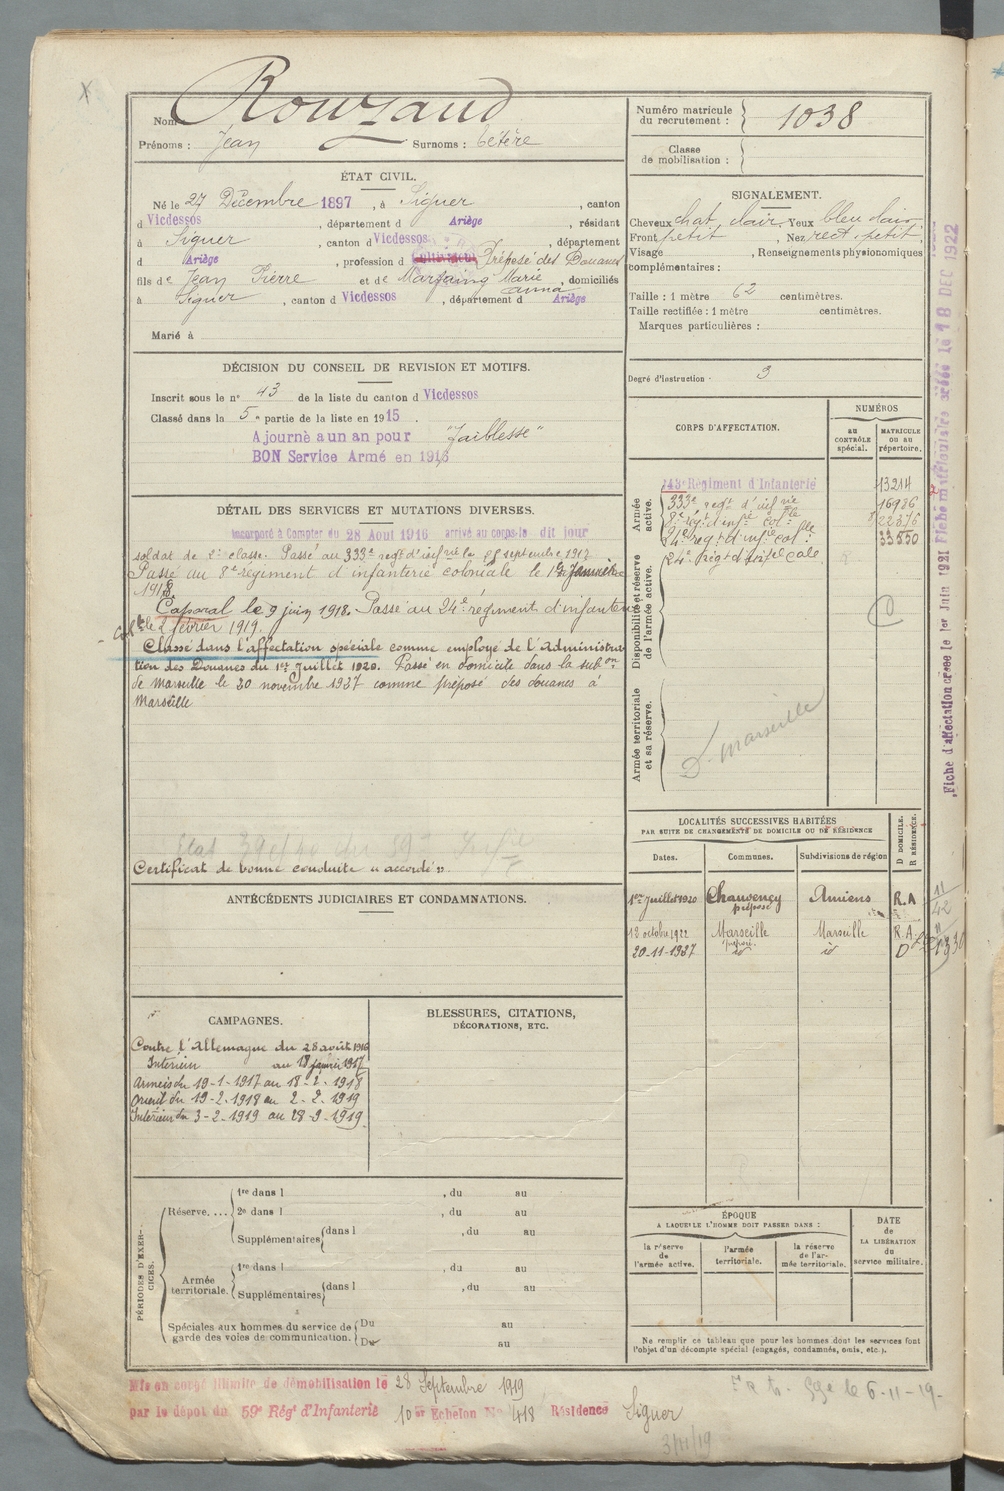 Nom Rouzaud
Prénoms : Jean Surnoms :
ÉTAT CIVIL.
Né le 27 Décembre 1897, à Siguer, canton
d Vicdessos, département d Ariège, résidant
à Siguer, canton d Vicdessos, département
d Ariège, profession d Cultivateur Préposé des Douanes
fils de Jean Pierre et de Marfaing Marie Anna, domiciliés
à Siguer, canton d Vicdessos, département d Ariège
Marié à
DÉCISION DU CONSEIL DE REVISION ET MOTIFS.
Inscrit sous le n° 43 de la liste du canton d Vicdessos
Classé dans la 5e partie de la liste en 1915.
Ajourné a un an pour "faiblesse"
BON Service Armé en 1916
DÉTAIL DES SERVICES ET MUTATIONS DIVERSES.
Incorporé à Compter du 28 Aout 1916 arrivé au corps le dit jour
soldat de 2e classe. Passé au 333e regt d'infrie le septembre 1917
Passé au 8e régiment d'infanterie coloniale le
1918.
Caporal le 9 juin 1918. Passé au 24e régiment d'infanterie
colle le 2 février 1919.
Classé dans l'affectation spéciale comme employé de l'Administra-
tion des Douanes du 1er Juillet 1920. Passé en domicile dans la subon
de Marseille le 30 novembre 1937 comme préposé des douanes à
Marseille
Certificat de bonne conduite "accordé".
ANTÉCÉDENTS JUDICIAIRES ET CONDAMNATIONS.
CAMPAGNES.
Contre l'Allemagne du 28 août 1916
Intérieur au 18 janvier 1917
Armées du 19-1-1917 au 18-2-1918
Orient du 19-2-1918 au 2-2-1919
Intérieur du 3-2-1919 au 28-9-1919.
BLESSURES, CITATIONS,
DÉCORATIONS, ETC.
PÉRIODES D'EXER-
CICES.
Réserve....
1re dans l , du au
2e dans l , du au
Supplémentaires dans l , du au
Armée
territoriale.
1re dans l , du au
Supplémentaires dans l , du au
Spéciales aux hommes du service de
garde des voies de communication.
Du au
Du au
Numéro matricule
du recrutement : 1038
Classe
de mobilisation :
SIGNALEMENT.
Cheveux chat. clair. Yeux bleu clair
Front petit, Nez rect. petit.
Visage , Renseignements physionomiques
complémentaires :
Taille : 1 mètre 62 centimètres.
Taille rectifiée : 1 mètre centimètres.
Marques particulières :
Degré d'instruction · 3
CORPS D'AFFECTATION.
NUMÉROS
AU
CONTRÔLE
spécial.
MATRICULE
OU AU
répertoire.
Armée
active.
143e Régiment d'Infanterie 13214
333e regt d'infrie 16986
8e régt d'infie colle
24e regt d'infie colle 33850
Disponibilité et réserve
de l'armée active.
24e Régt d'infie cole
Armée territoriale
et sa réserve.
D. Marseille
LOCALITÉS SUCCESSIVES HABITÉES
PAR SUITE DE CHANGEMENTS DE DOMICILE OU DE RÉSIDENCE
D DOMICILE.
R RÉSIDENCE.
Dates. Communes. Subdivisions de région
1er Juillet 1920 Chauvency préposé Amiens R.A
12 octobre 1922 Marseille préposé Marseille R.A.
20-11-1937 id id D
ÉPOQUE
A LAQUELLE L'HOMME DOIT PASSER DANS :
la réserve
de
l'armée active.
l'armée
territoriale.
la réserve
de l'ar-
mée territoriale.
DATE
de
LA LIBÉRATION
du
service militaire.
Ne remplir ce tableau que pour les hommes dont les services font
l'objet d'un décompte spécial (engagés, condamnés, omis, etc.).
Fiche d'affectation créée le 1er Juin 1921 Fiche matriculaire créée le 18 DEC 1922
Mis en congé illimité de démobilisation le 28 Septembre 1919
par le dépôt du 59e Régt d'Infanterie 10er Echelon No 418 Résidence Siguer
3/11/19